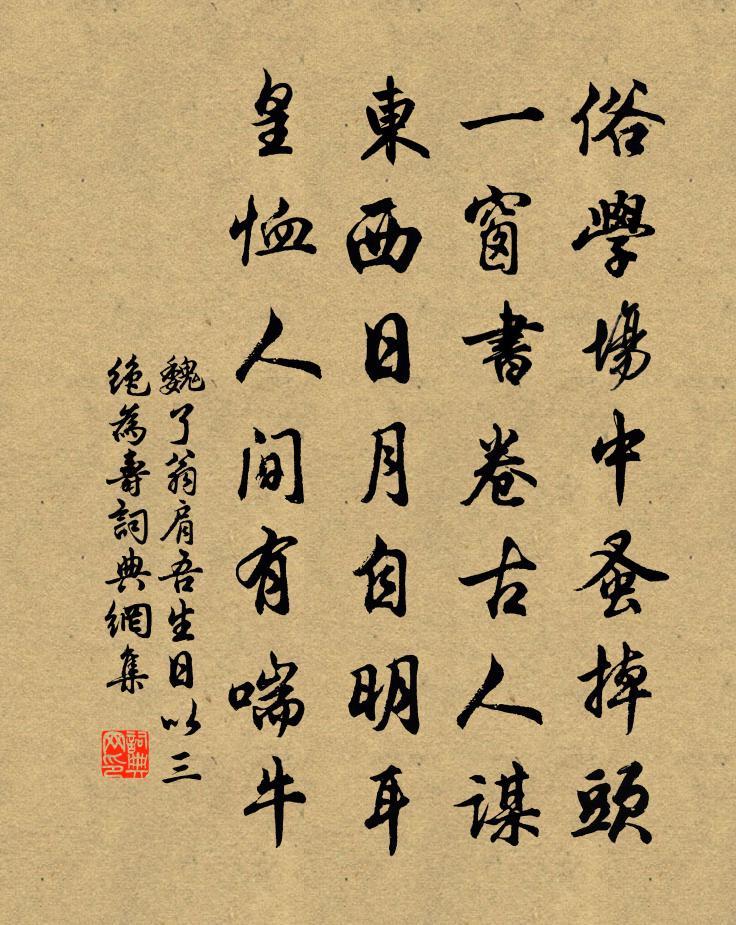 俗學場中蚤掉頭
一窗書卷古人謀
東西日月自明耳
皇恤人間有喘牛
魏了翁肩吾生日以三
絶為壽詞典網集
詞典网印